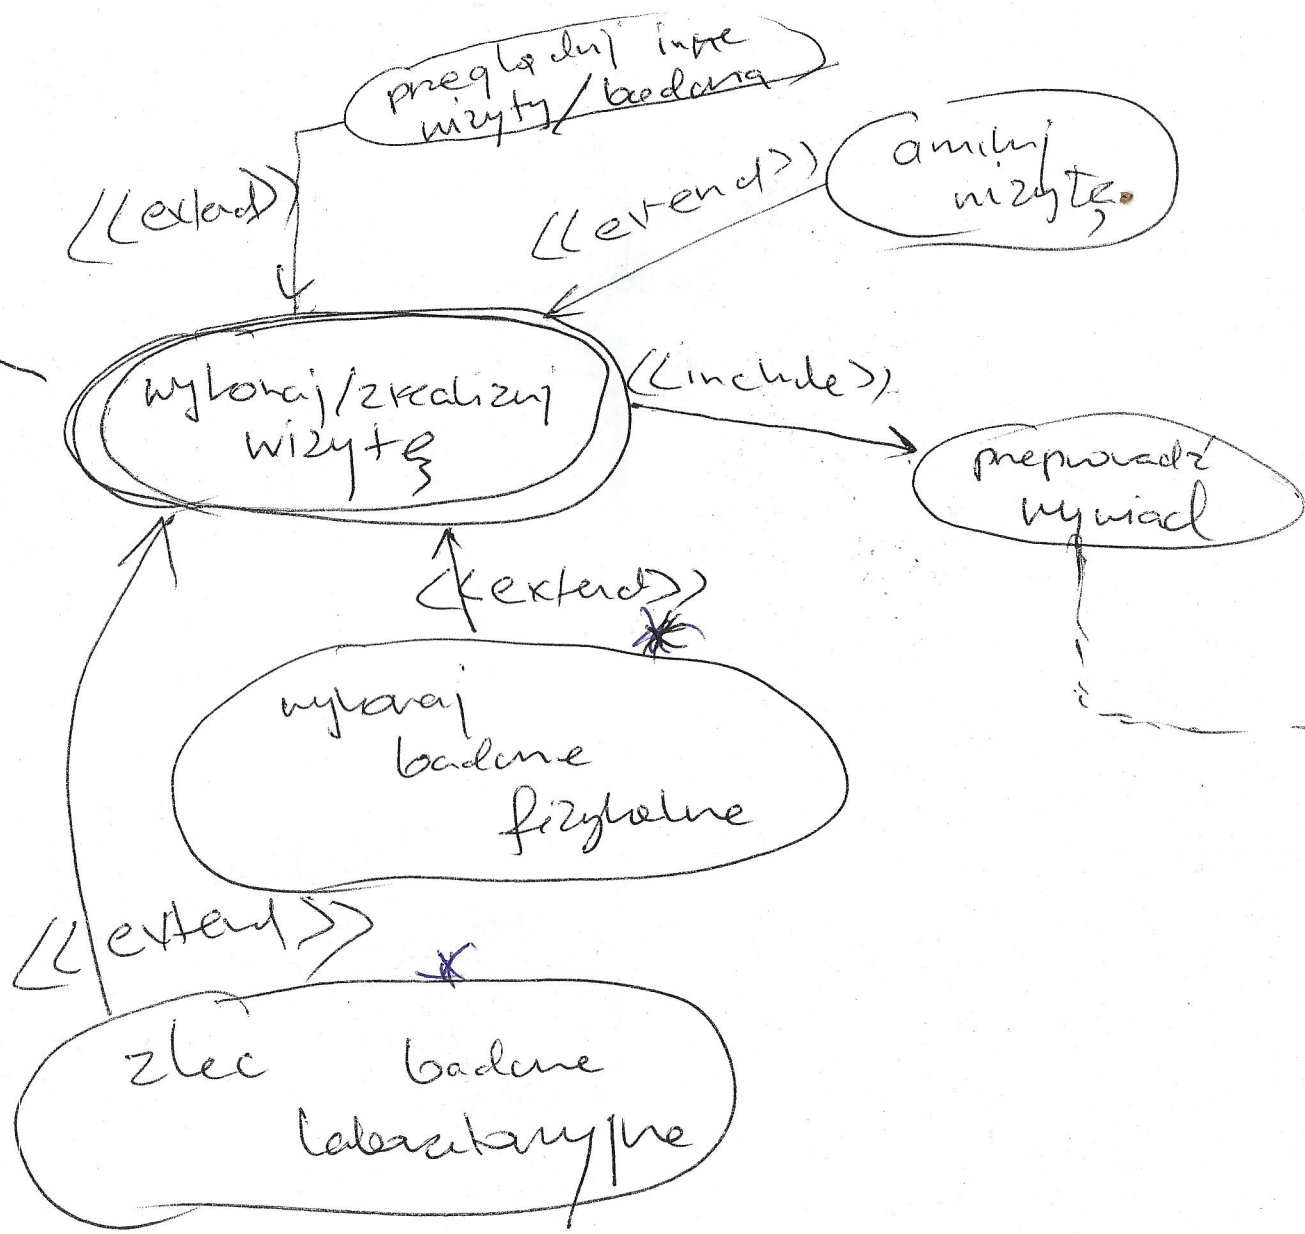 przeglądaj inne
wizyty/badania
<<extend>>
<<extend>>
anuluj
wizytę
wykonaj/zrealizuj
wizytę
<<include>>
przeprowadź
wywiad
<<extend>>
wykonaj
badanie
fizykalne
<<extend>>
zleć badanie
laboratoryjne